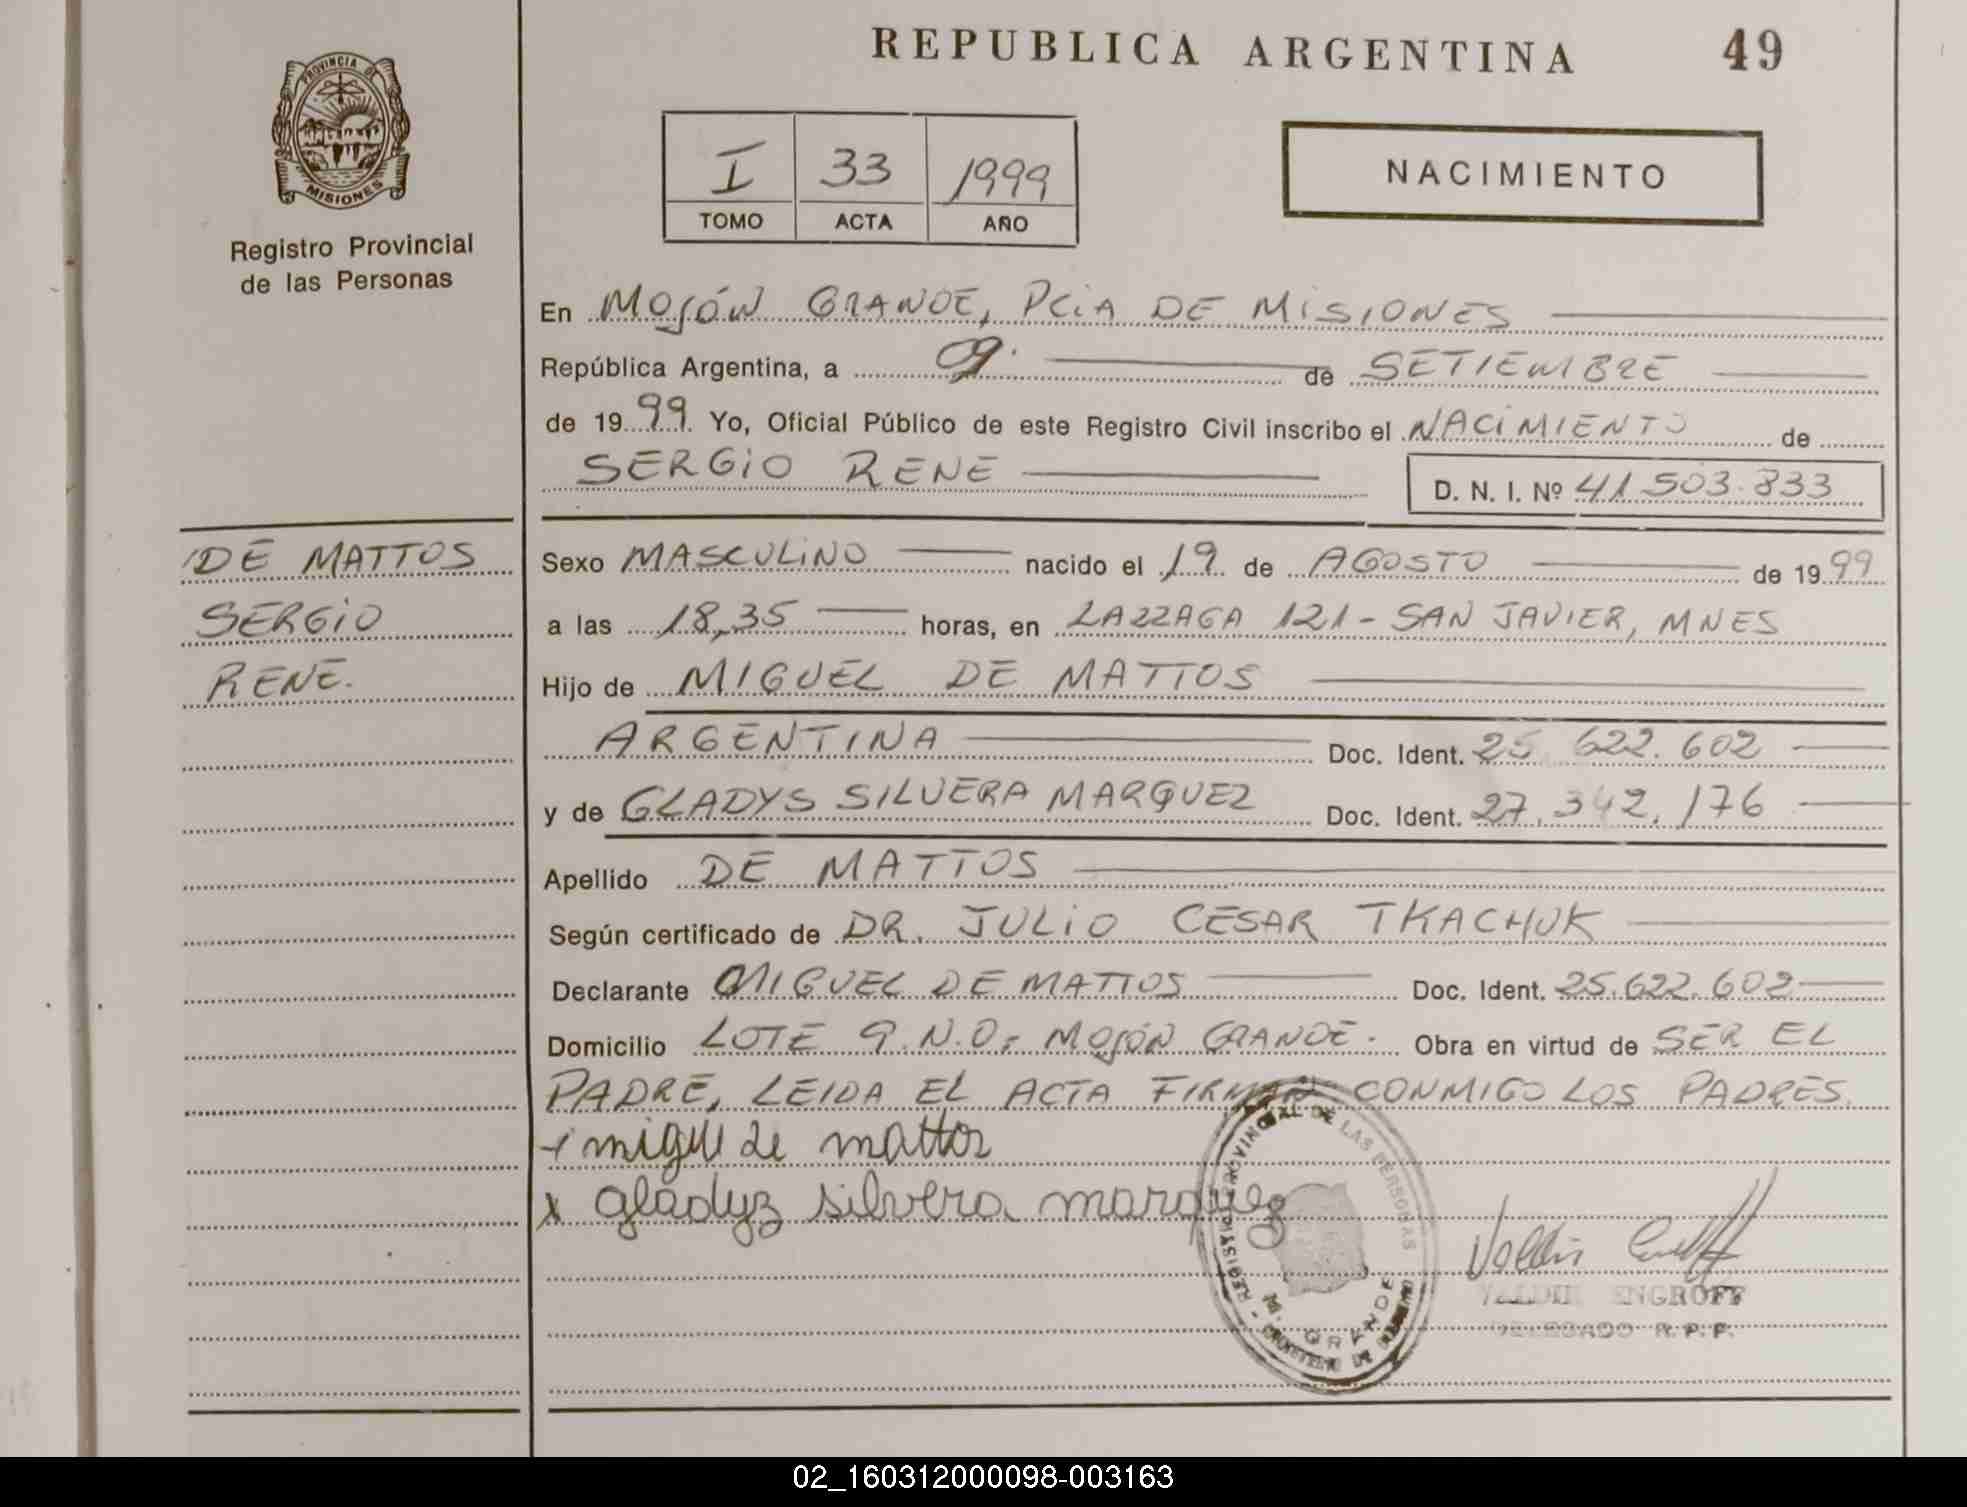 REPUBLICA ARGENTINA 49
PROVINCIA DE
MISIONES
Registro Provincial
de las Personas
I 33 1999
TOMO ACTA AÑO
NACIMIENTO
En MOJÓN GRANDE, PCIA DE MISIONES
República Argentina, a 09. de SETIEMBRE
de 1999 Yo, Oficial Público de este Registro Civil inscribo el NACIMIENTO de
SERGIO RENE D. N. I. Nº 41.503.833
DE MATTOS
SERGIO
RENE.
Sexo MASCULINO nacido el 19 de AGOSTO de 1999
a las 18,35 horas, en LAZZAGA 121 - SAN JAVIER, MNES
Hijo de MIGUEL DE MATTOS
ARGENTINA Doc. Ident. 25.622.602
y de GLADYS SILVERA MARQUEZ Doc. Ident. 27.342.176
Apellido DE MATTOS
Según certificado de DR. JULIO CESAR TKACHUK
Declarante MIGUEL DE MATTOS Doc. Ident. 25.622.602
Domicilio LOTE 9 N.O, MOJÓN GRANDE. Obra en virtud de SER EL
PADRE, LEIDA EL ACTA FIRMAN CONMIGO LOS PADRES.
x miguel de mattos
x gladyz silvera marquez
REGISTRO PROVINCIAL DE LAS PERSONAS
M. GRANDE
MINISTERIO DE GOBIERNO
ENGROFF
DELEGADO R.P.P.
02_160312000098-003163